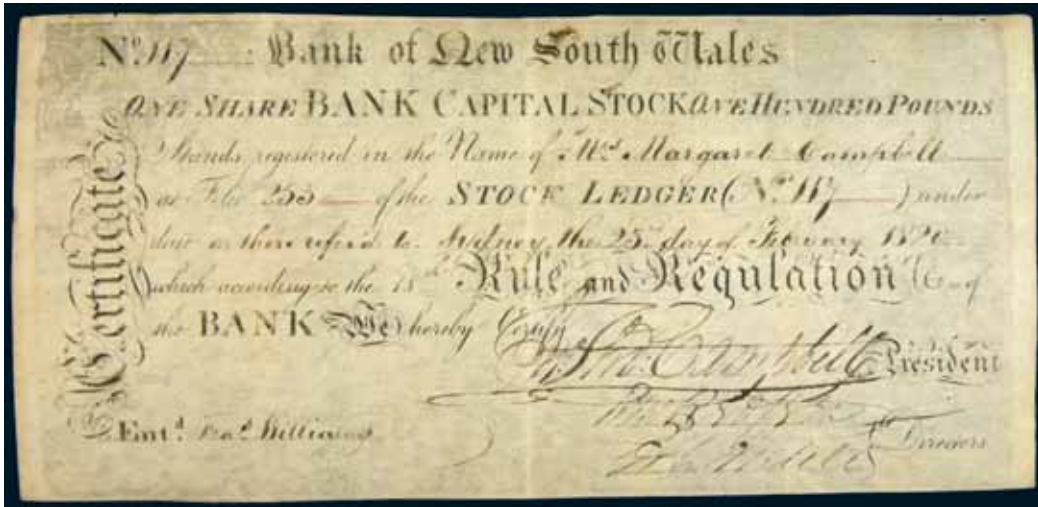 Nº 117 Bank of New South Wales
ONE SHARE BANK CAPITAL STOCK ONE HUNDRED POUNDS
Stands registered in the Name of Mrs Margaret Campbell
as Folio 253 of the STOCK LEDGER (Nº 117) under
date as there referd to. Sydney, the 25 day of February 1820
which according to the 18th Rule and Regulation of
the BANK We hereby Certify
Campbell President
Directors
Certificate
Entd. Fras. Williams